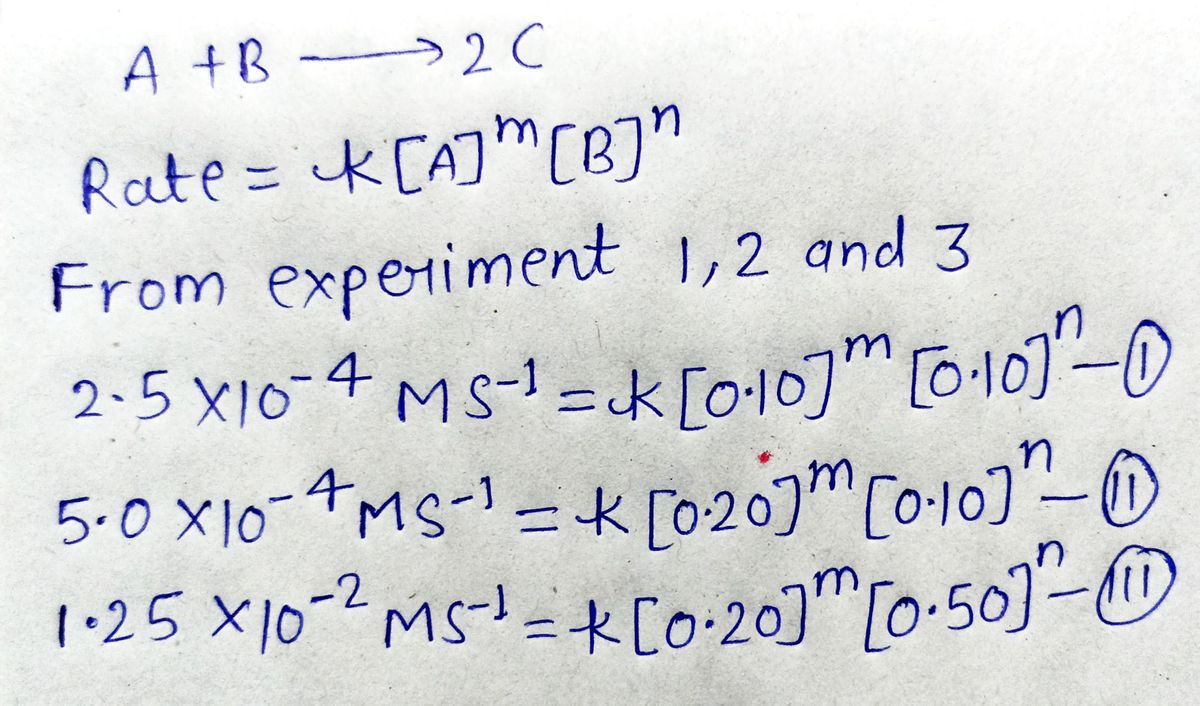 A + B ⟶ 2 C
Rate = k [A]ᵐ [B]ⁿ
From experiment 1,2 and 3
2.5 X10⁻⁴ MS⁻¹ = k [0.10]ᵐ [0.10]ⁿ - Ⓘ
5.0 X10⁻⁴ MS⁻¹ = k [0.20]ᵐ [0.10]ⁿ - (II)
1.25 X10⁻² MS⁻¹ = k [0.20]ᵐ [0.50]ⁿ - (III)